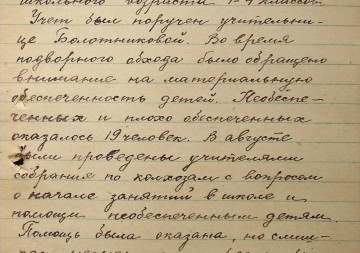 школьного возраста 1-4 классов.
Учет был поручен учительни-
це Болотниковой. Во время
подворного обхода было обращено
внимание на материальную
обеспеченность детей. Необеспе-
ченных и плохо обеспеченных
оказалось 19 человек. В августе
были проведены учителями
собрания по колхозам с вопросом
о начале занятий в школе и
помощи необеспеченным детям.
Помощь была оказана, но слиш-